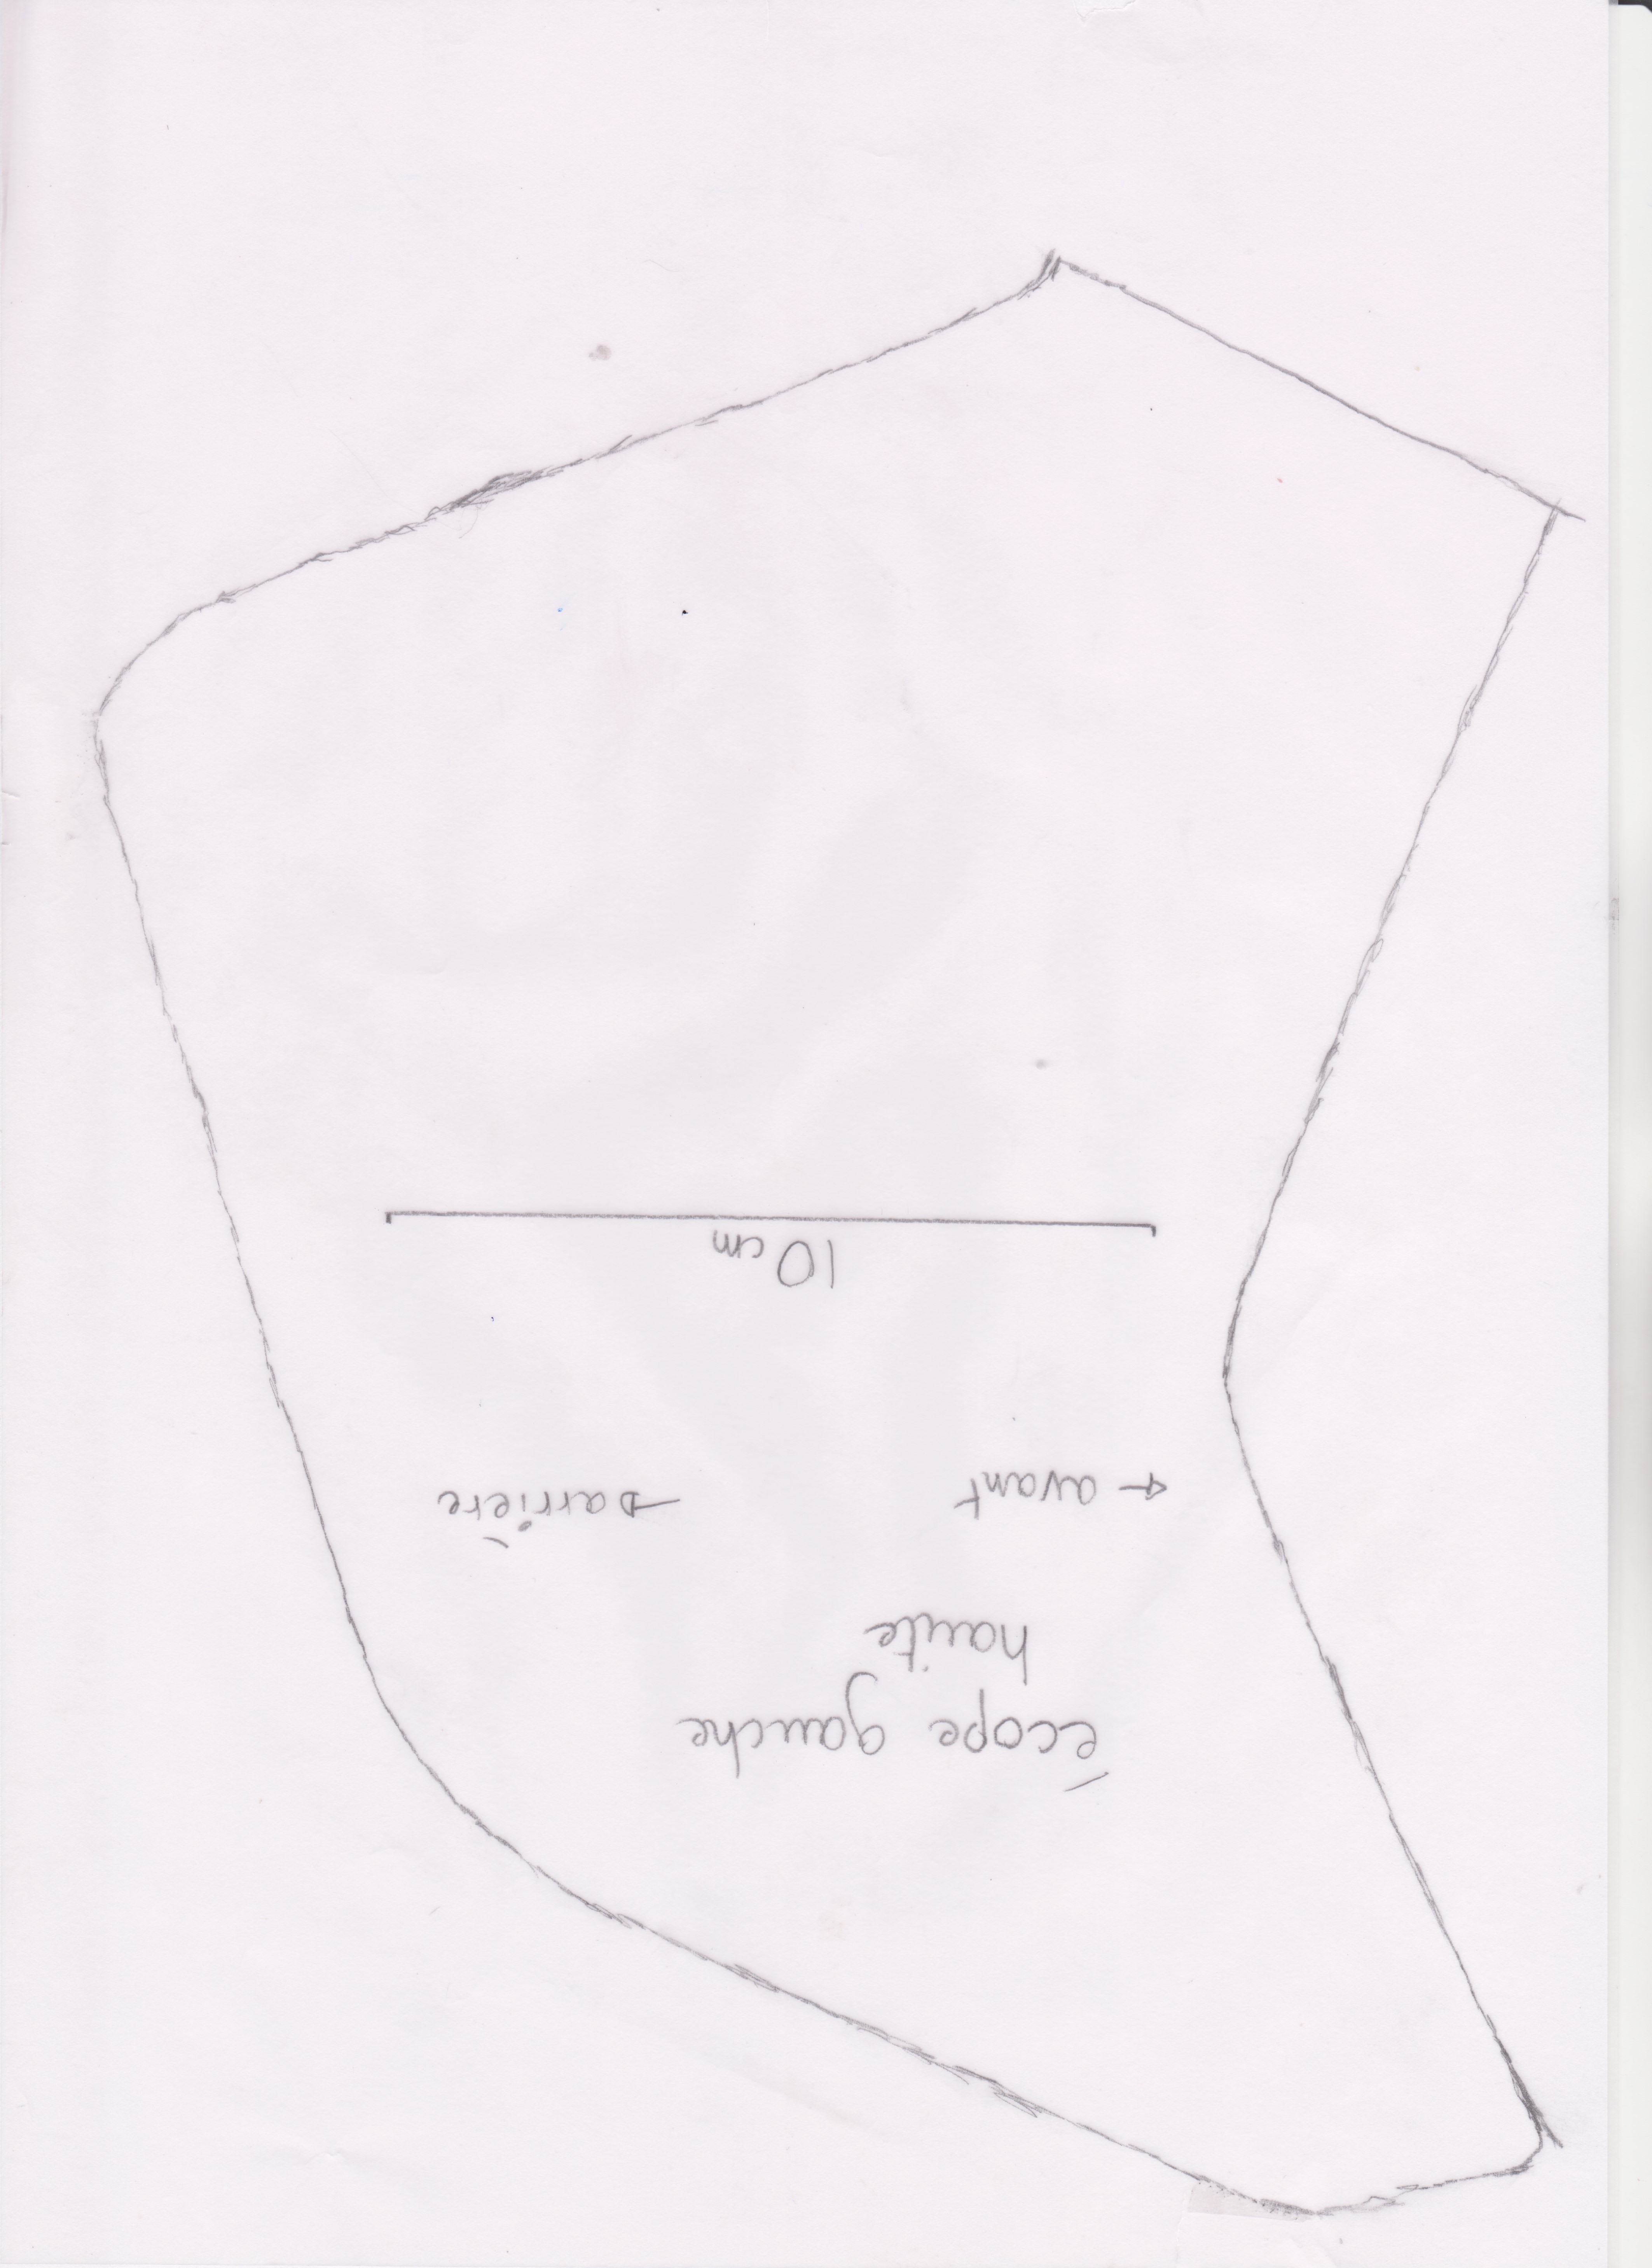 écope gauche
haute
← avant → arrière
10 cm